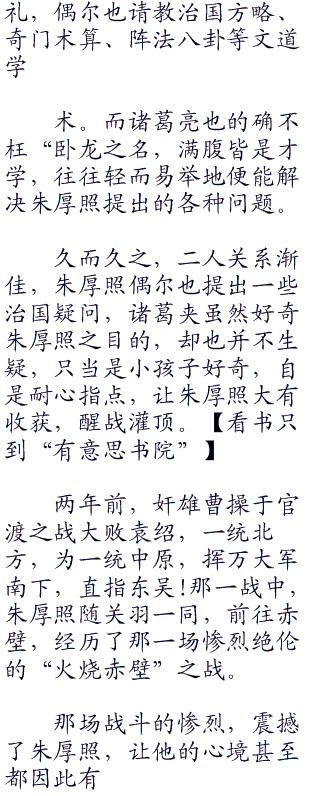 礼，偶尔也请教治国方略、
奇门术算、阵法八卦等文道
学
术。而诸葛亮也的确不
枉“卧龙之名，满腹皆是才
学，往往轻而易举地便能解
决朱厚照提出的各种问题。
久而久之，二人关系渐
佳，朱厚照偶尔也提出一些
治国疑问，诸葛夹虽然好奇
朱厚照之目的，却也并不生
疑，只当是小孩子好奇，自
是耐心指点，让朱厚照大有
收获，醒战灌顶。【看书只
到“有意思书院”】
两年前，奸雄曹操于官
渡之战大败袁绍，一统北
方，为一统中原，挥万大军
南下，直指东吴!那一战中，
朱厚照随关羽一同，前往赤
壁，经历了那一场惨烈绝伦
的“火烧赤壁”之战。
那场战斗的惨烈，震撼
了朱厚照，让他的心境甚至
都因此有